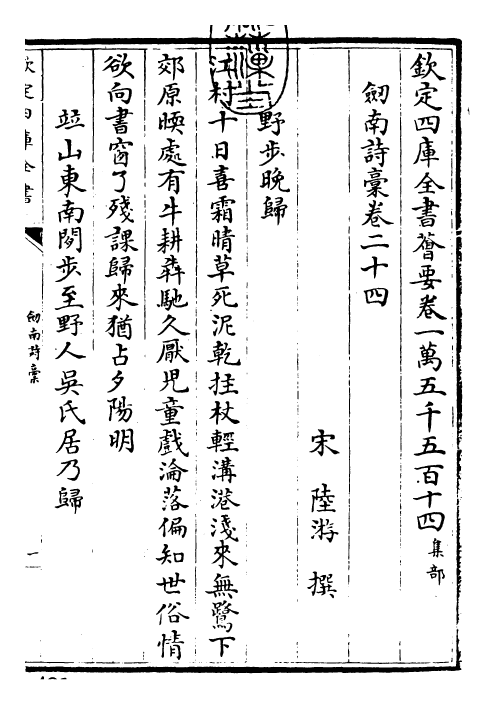 欽定四庫全書薈要卷一萬五千五百十四 集部
劒南詩稾卷二十四
宋 陸游 撰
野步晚歸
江村十日喜霜晴草死泥乾拄杖輕溝港淺來無鷺下
郊原暎處有牛耕犇馳久厭児童戲淪落偏知世俗情
欲向書窗了殘課歸來猶占夕陽明
竝山東南閒步至野人吳氏居乃歸
欽定四庫全書
劒南詩稾
一